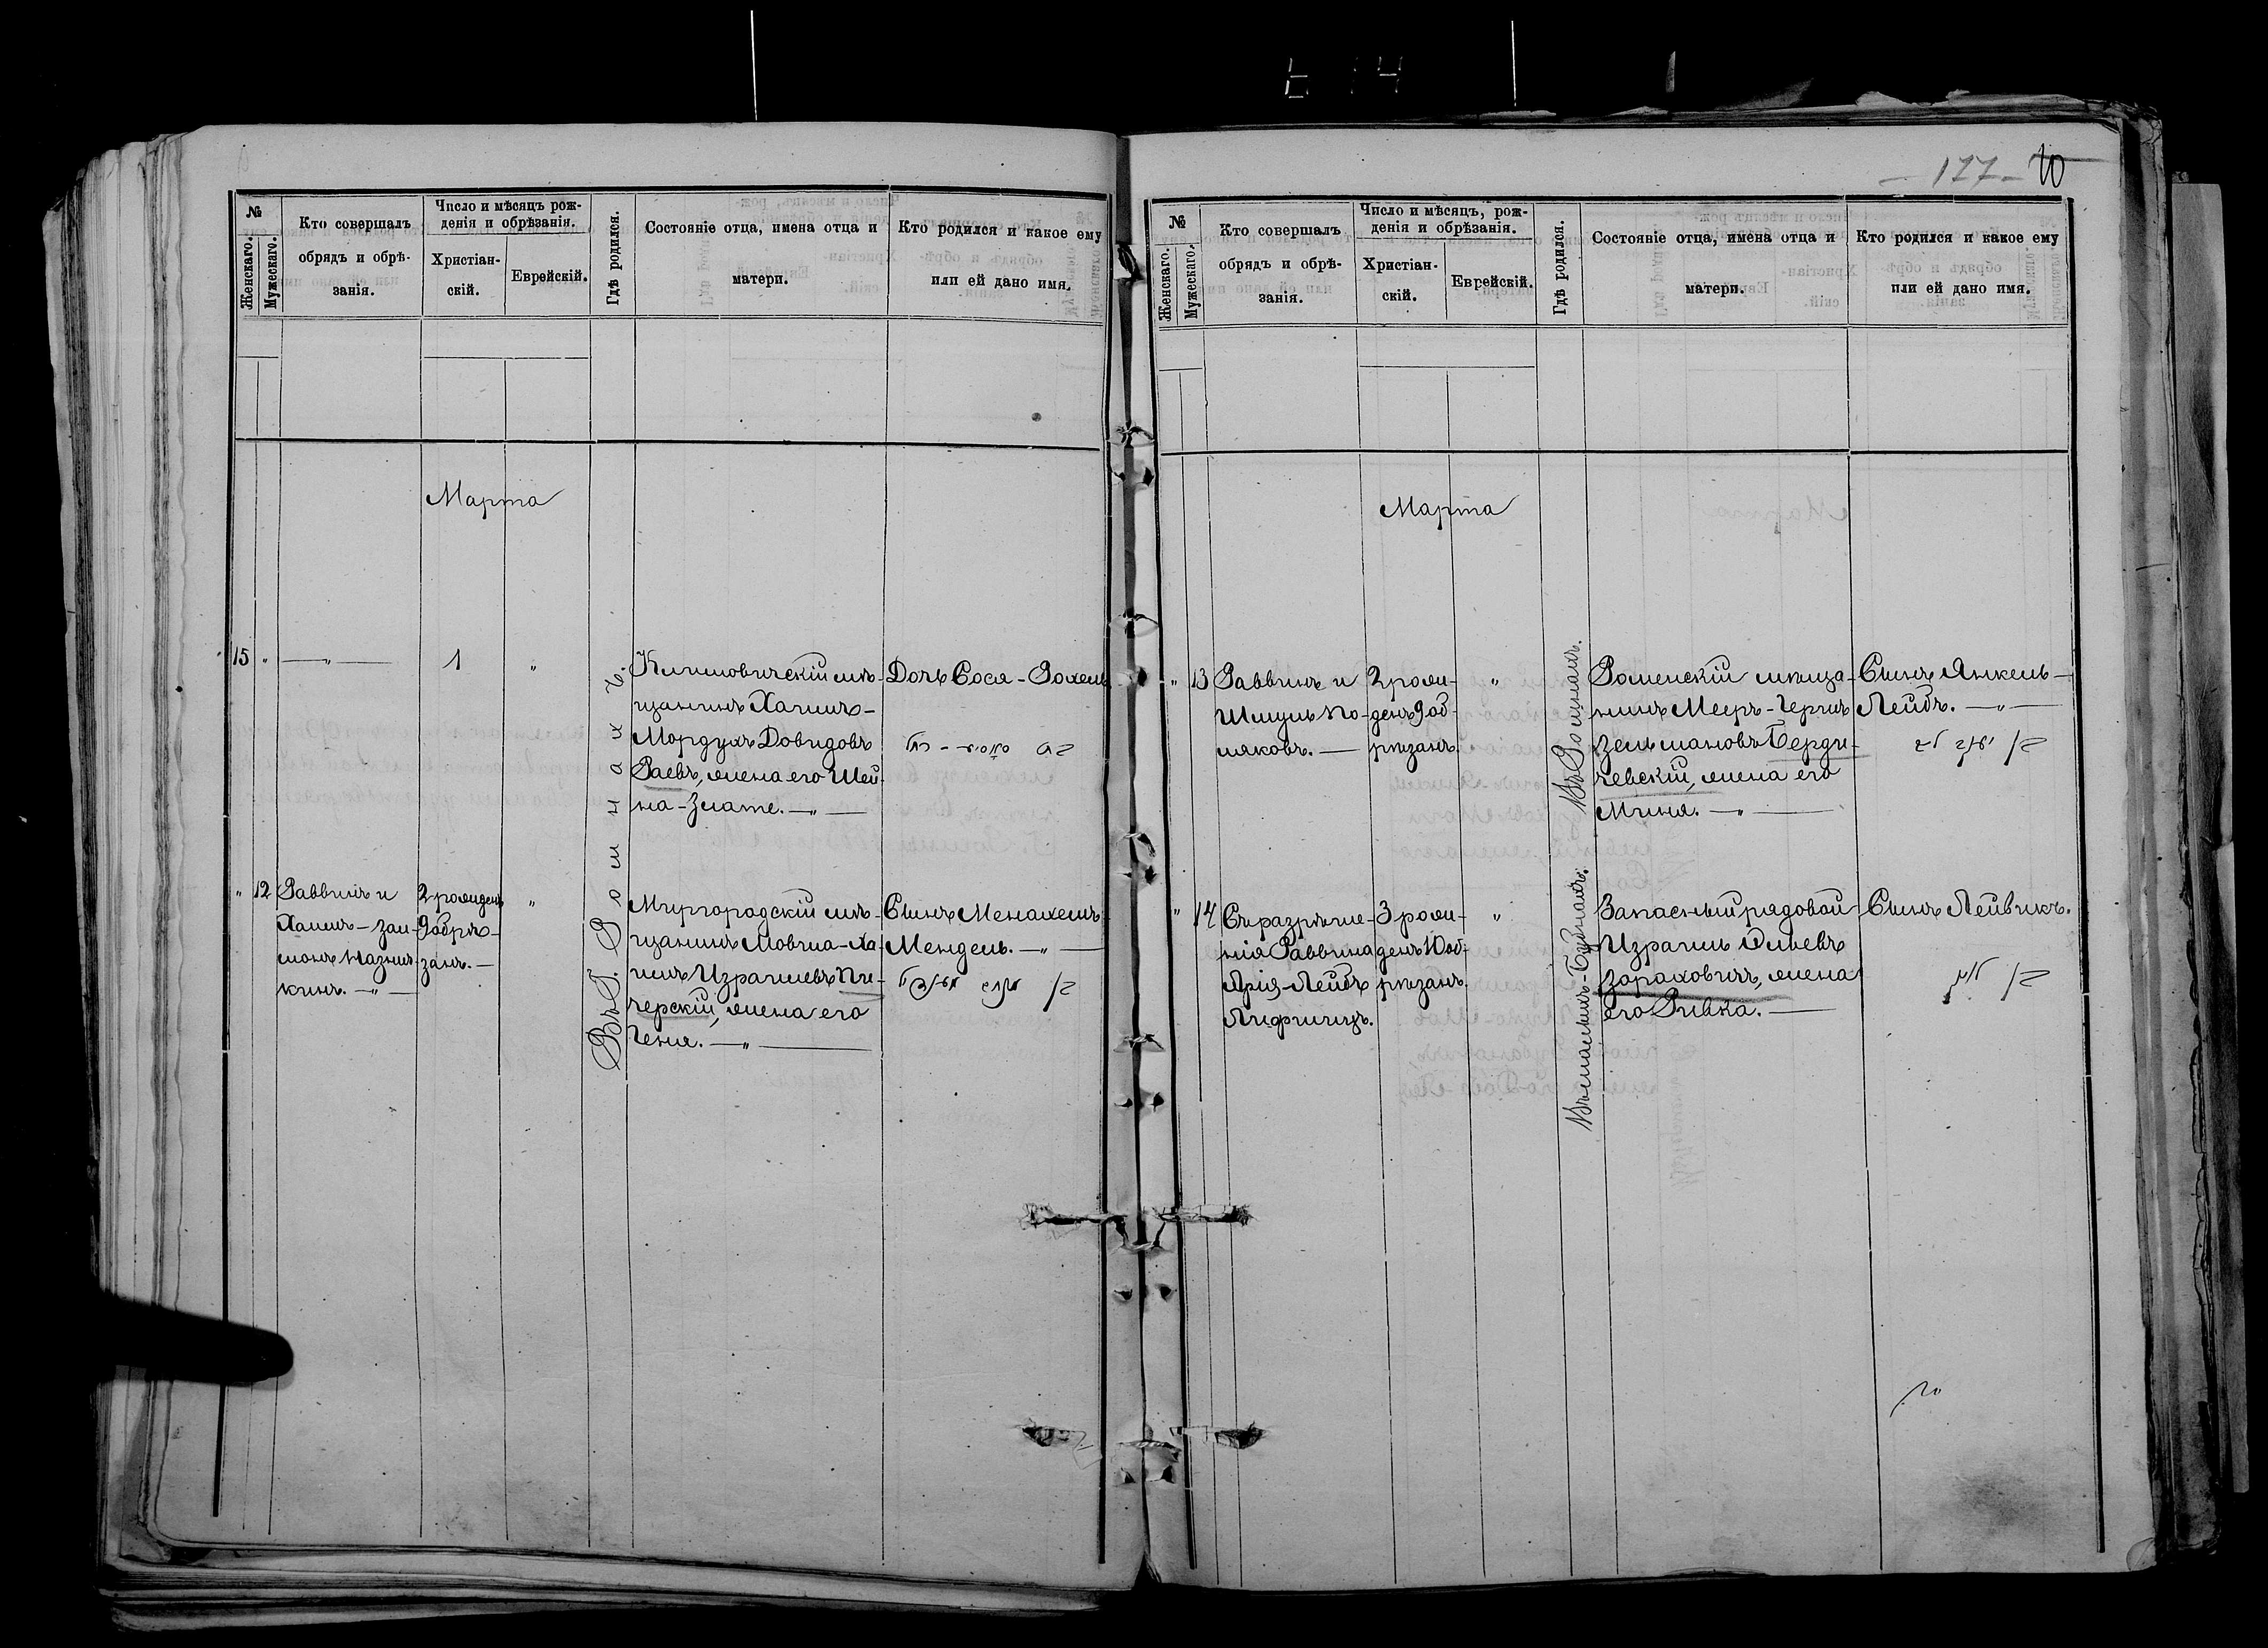 №
Женскаго.
Мужескаго.
Кто совершалъ
обрядъ и обрѣ-
занія.
Число и мѣсяцъ рож-
денія и обрѣзанія.
Христіан-
скій.
Еврейскій.
Гдѣ родился.
Состояніе отца, имена отца и
матери.
Кто родился и какое ему
или ей дано имя.
Марта
15 " — " —
1
"
Въ Г. Ромнахъ.
Климовичскій мѣ-
щанинъ Хаимъ-
Мордухъ Довидовъ
Раевъ, жена его Шей-
на-Злате. — " —
Дочь Сося-Рохель
" 12
Раввинъ и
Хаимъ-Зал-
монъ
кинъ. — " —
2 рожденъ
9 обрѣ-
занъ. —
"
Миргородскій мѣ-
щанинъ Мовша-Ха-
имъ Израилевъ Пи-
черскій, жена его
Геня. — " —
Сынъ Менахемъ-
Мендель. — " —
— 177 — 10
№
Женскаго.
Мужескаго.
Кто совершалъ
обрядъ и обрѣ-
занія.
Число и мѣсяцъ, рож-
денія и обрѣзанія.
Христіан-
скій.
Еврейскій.
Гдѣ родился.
Состояніе отца, имена отца и
матери.
Кто родился и какое ему
или ей дано имя.
Марта
" 13
Раввинъ и
Шмуль По-
ляковъ. —
2 рож-
денъ 9 об-
рѣзанъ.
"
Въ Ромнахъ.
Роменскій мѣща-
нинъ Мееръ-Герцъ
Зельмановъ Берди-
чевскій, жена его
Миня. — " —
Сынъ Янкель-
Лейбъ. — " —
" 14
Съ разрѣше-
нія Раввина
Арія-Лейбъ
Лифшицъ.
3 рож-
денъ 10 об-
рѣзанъ.
"
Запасный рядовой
Израиль
Зораховичъ, жена
его Ривка. —
Сынъ Лейвикъ.